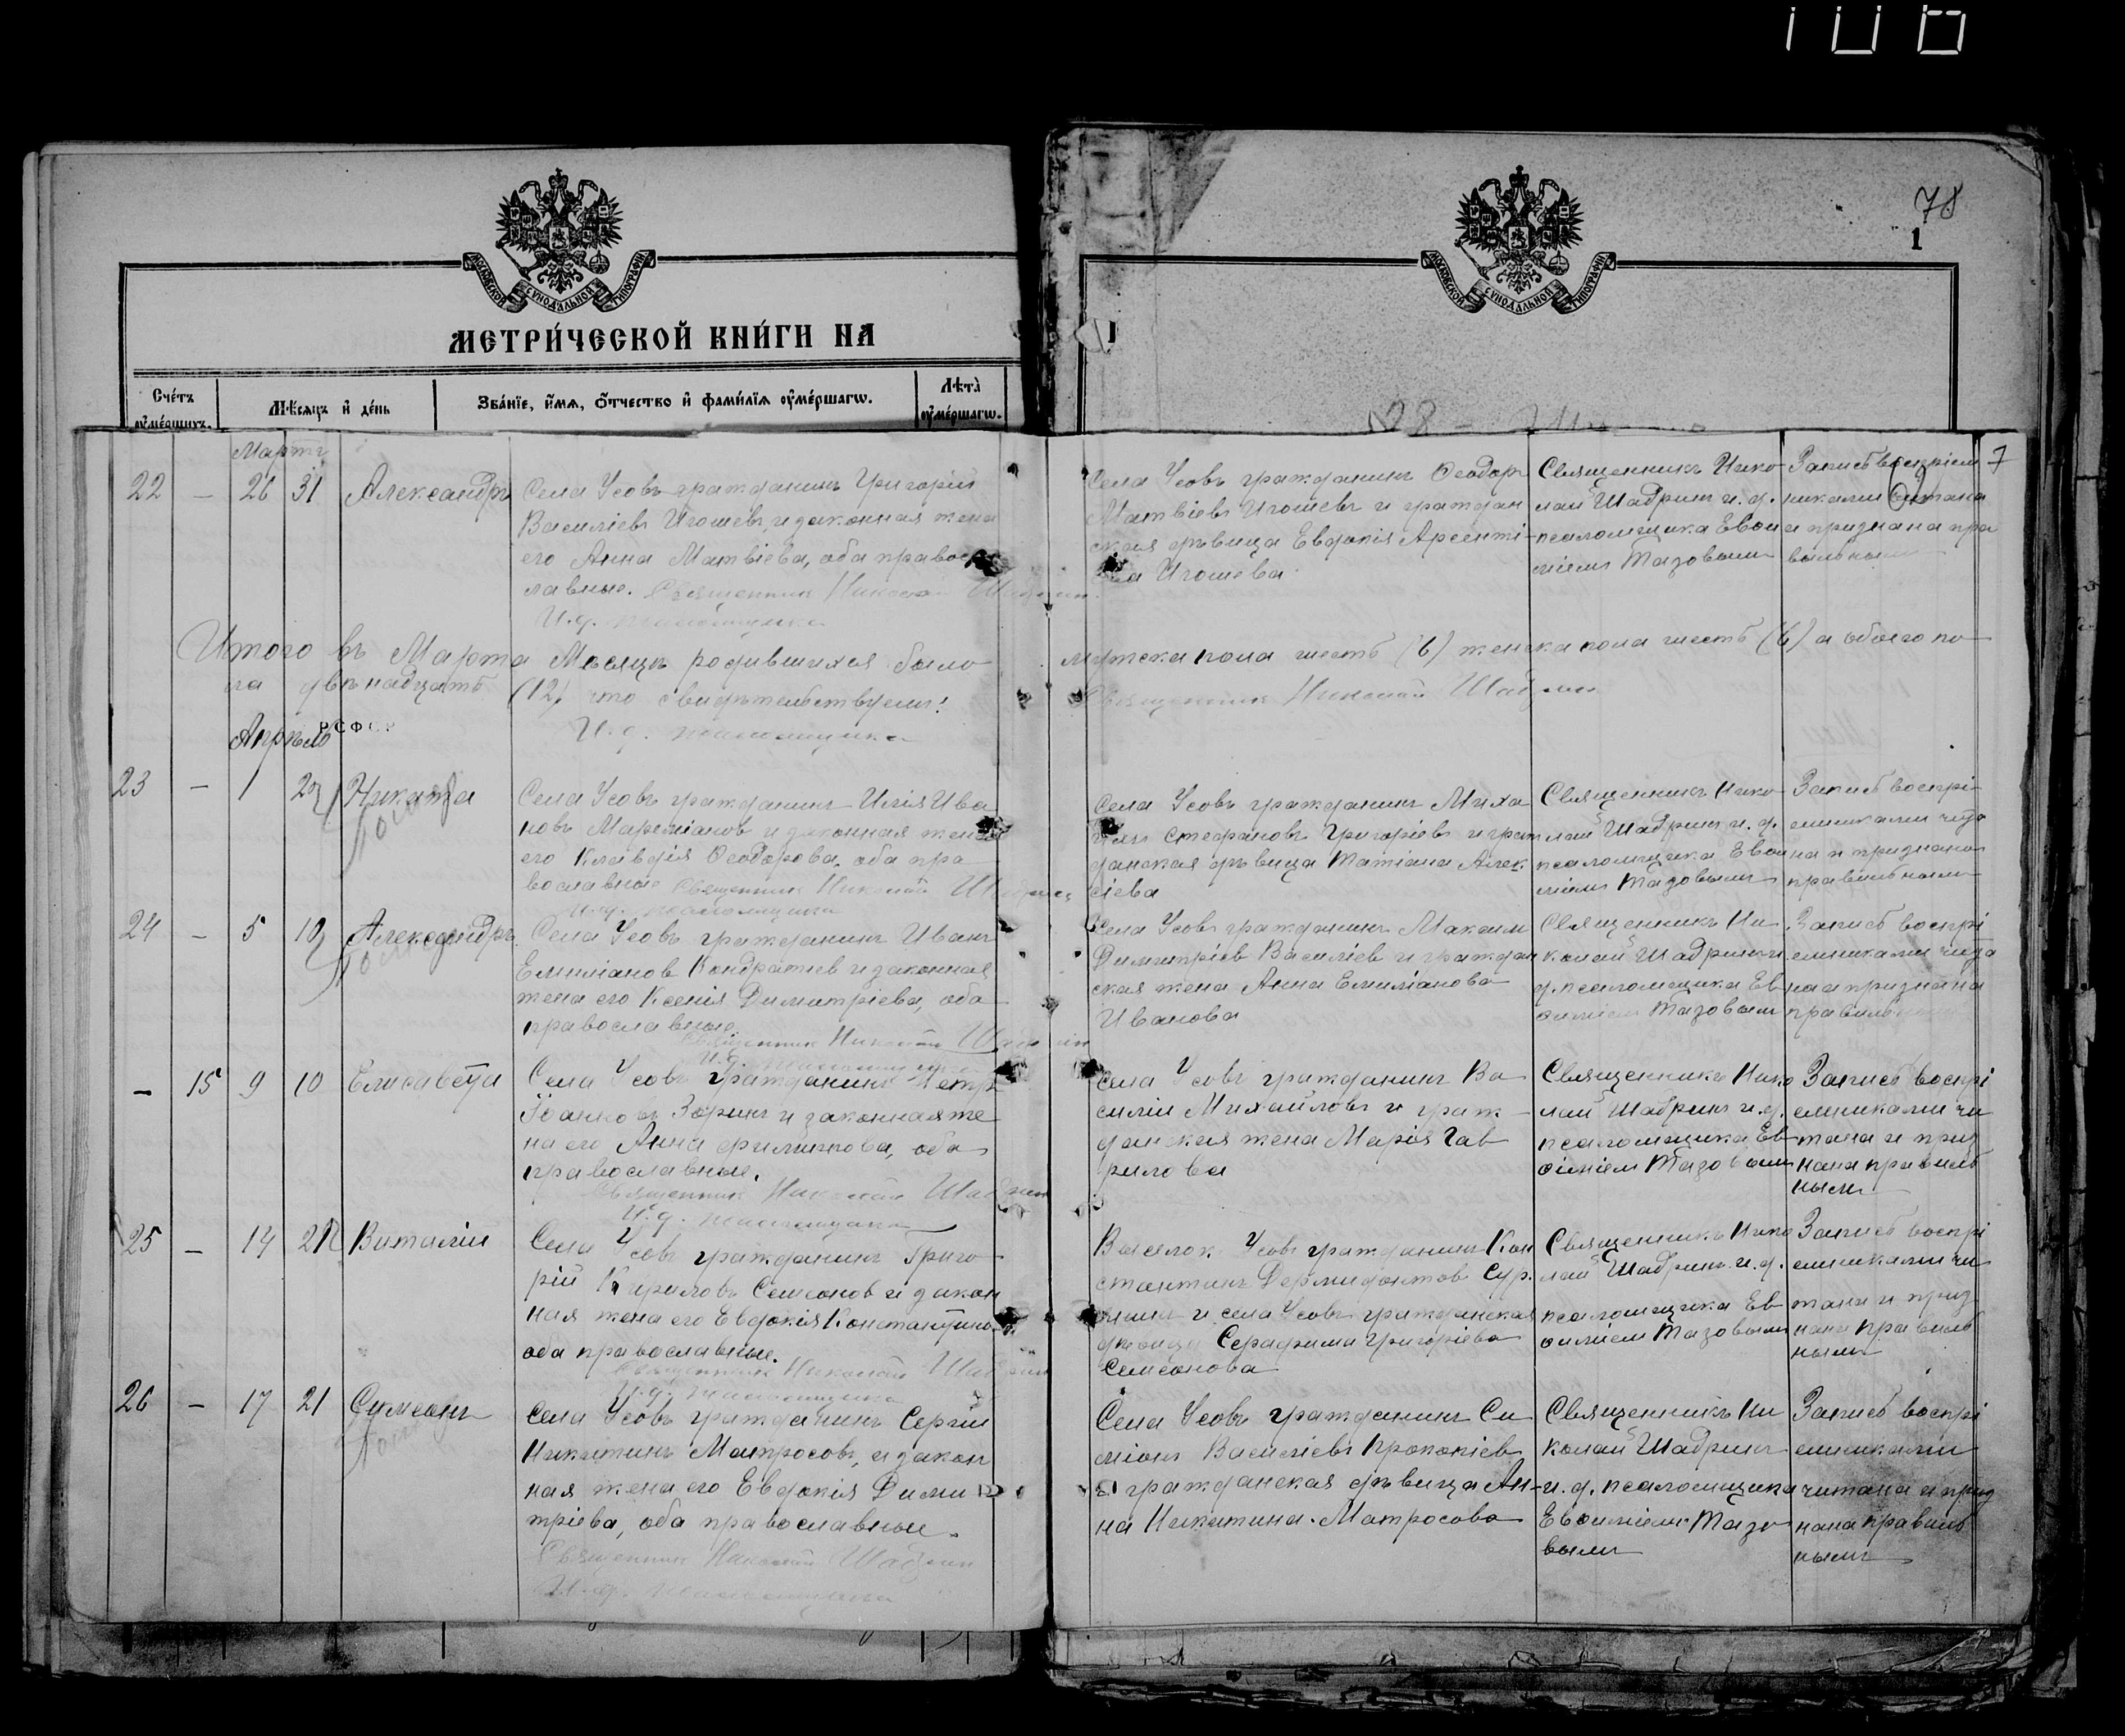 106
78
1
МОСКОВСКОЙ СѴНОДАЛЬНОЙ ТИПОГРАФІИ
МОСКОВСКОЙ СѴНОДАЛЬНОЙ ТИПОГРАФІИ
МЕТРИ́ЧЕСКОЙ КНИ́ГИ НА
Счéтъ ᲂу҆мéршихъ.
Мѣ́сѧцъ и҆ дéнь
Звáнїе, и҆́мѧ, ѻ҆́тчество и҆ фами́лїѧ ᲂу҆мéршагѡ.
Лѣтà ᲂу҆мéршагѡ.
Мартъ
22 — 26 31 Александръ
Села Усовъ гражданинъ Григорій
Василіевъ Игошевъ, и законная жена
его Анна Матвіева, оба право
славные. Священникъ Николай Шадрин
И.д. псаломщика
Села Усовъ гражданинъ Ѳеодоръ
Матвіевъ Игошевъ и граждан
ская дѣвица Евдокія Арсенті-
ева Игошева
Священникъ Нико
лай Шадринъ и.д.
псаломщика Евѳи
міемъ Тазовымъ
Запись воспріем
никами читана
и признана пра
вильным
7
Итого въ Марта Мѣсяцѣ родившихся было
мужска пола шесть (6) женска пола шесть (6) а обоего по
ла двѣнадцать (12) что свидѣтельствуемъ:
Священникъ Николай Шадрин
И.д. псаломщика
Апрѣль
РСФСР
23 — 1 2 Никита
Села Усовъ гражданинъ Илія Ива
новъ Мареміанов и законная жена
его Клавдія Ѳеодорова, оба пра
вославные Священник Николай Шадрин
И.д. псаломщика
Села Усовъ гражданинъ Миха
илъ Стефановъ Григоріевъ и граж
данская дѣвица Татіана Алек
сіева
Священникъ Нико
лай Шадринъ и.д.
псаломщика Евѳи
міемъ Тазовымъ
Запись воспрі
емниками чита
на и признана
правильным
24 — 5 10 Александръ
Села Усовъ гражданинъ Иванъ
Емиліанов Кондратиев и законная
жена его Ксенія Димитріева, оба
православные
Священник Николай Шадрин
И.д. псаломщика
Села Усовъ гражданинъ Максим
Димитріев Василіев и граждан
ская жена Анна Емиліанова
Иванова
Священникъ Ни
колай Шадринъ и
д. псаломщика Ев
ѳиміем Тазовым
Запись воспрі
емниками чита
на и признана
правильным
— 15 9 10 Елисавета
Села Усовъ гражданинъ Петр
Іоанновъ Зоринъ и законная же
на его Анна Филиппова, оба
православные.
Священник Николай Шадрин
И.д. псаломщика
Села Усовъ гражданинъ Ва
силій Михайловъ и граж
данская жена Марія Гав
рилова
Священникъ Нико
лай Шадринъ и.д.
псаломщика Ев
ѳиміем Тазовым
Запись воспрі
емниками чи
тана и приз
нана правиль
ным
25 — 14 21 Виталій
Села Усовъ гражданинъ Григо
рій Кириловъ Семенов и закон
ная жена его Евдокія Константинов
оба православные.
Священник Николай Шадрин
И.д. псаломщика
Выселок Усовъ гражданинъ Кон
стантинъ
и села Усовъ гражданская
дѣвица Серафима Григоріева
Семенова
Священникъ Нико
лай Шадринъ и.д.
псаломщика Ев
ѳиміем Тазовым
Запись воспрі
емниками чи
тана и приз
нана правиль
ным
26 — 17 21 Симеонъ
Села Усовъ гражданинъ Сергій
Никитинъ Матросовъ, и закон
ная жена его Евдокія Дими
тріева, оба православные.
Священник Николай Шадрин
И.д. псаломщика
Села Усовъ гражданинъ Си
міонъ Василіевъ Прокопіев
и гражданская дѣвица Ан-
на Никитина Матросова
Священникъ Ни
колай Шадринъ
и.д. псаломщика
Евѳиміемъ Тазо
вымъ
Запись воспрі
емниками
читана и приз
нана правиль
нымъ